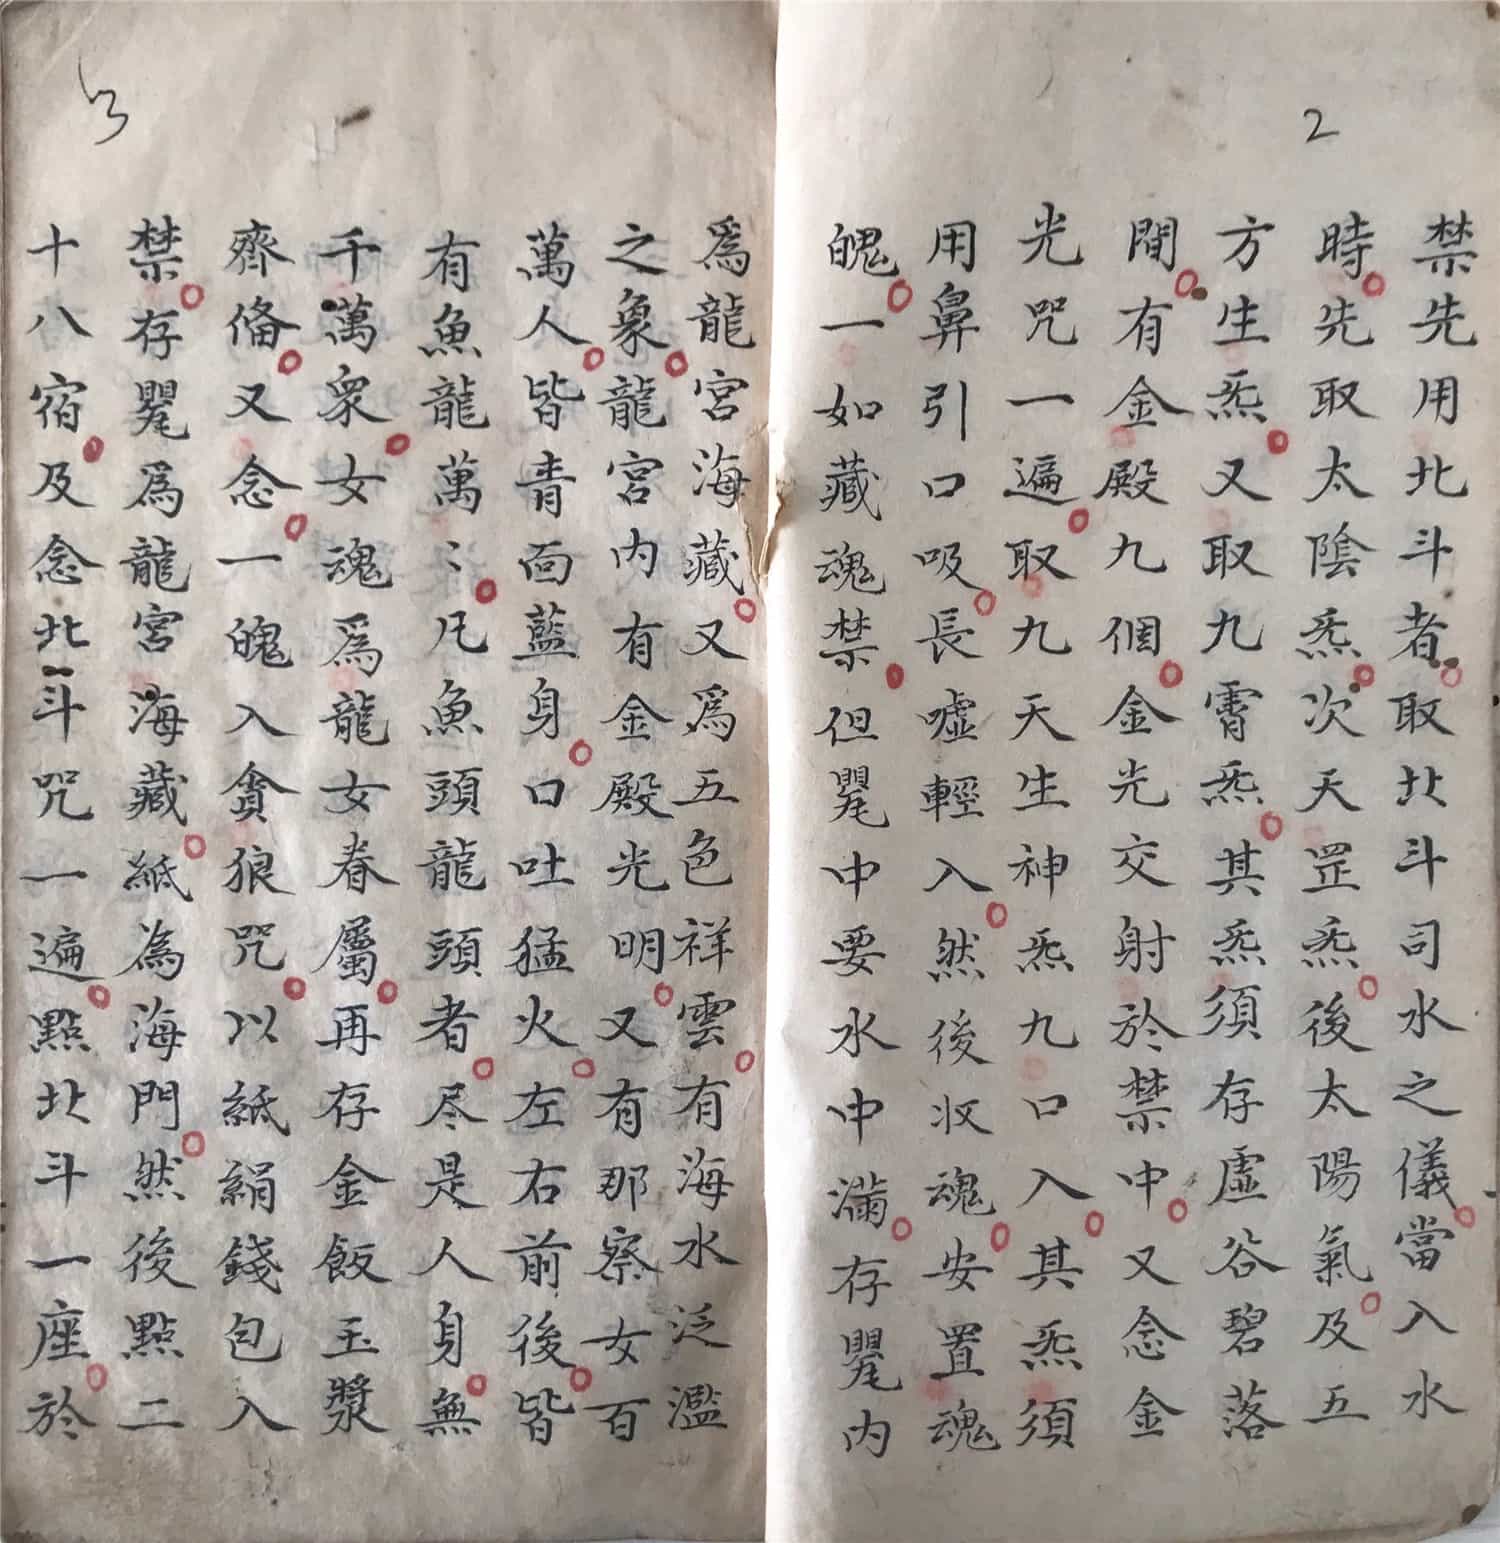 2
禁先用北斗者取北斗司水之儀當入水
時先取太陰炁次天罡炁後太陽氣及五
方生炁又取九霄炁其炁須存虛谷碧落
間有金殿九個金光交射於禁中又念金
光咒一遍取九天生神炁九口入其炁須
用鼻引口吸長噓輕入然後收魂安置魂
魄一如藏魂禁但중要水中滿存內
3
為龍宮海藏又為五色祥雲有海水泛濫
之象龍宮內有金殿光明又有那察女百
萬人皆青面藍身口吐猛火左右前後皆
有魚龍萬〻凡魚頭龍頭者尽是人身無
千萬衆女魂為龍女眷屬再存金飯玉漿
齊俻又念一魄入貪狼咒以紙絹錢包入
禁存為龍宮海藏紙為海門然後點二
十八宿及念北斗咒一遍點北斗一座於